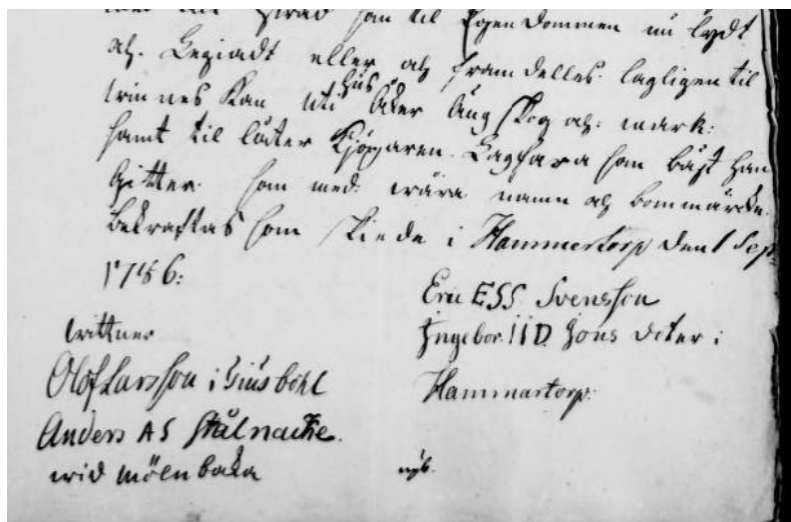 som til Egendommen nu lydt
och Begiadt eller och framdelles lagligen til
winnes Kan uti hus Åker Äng skog och mark:
samt til låter Kjöparen Lagfara som bäst han
gitter som med wåra namn och bommärcke
bekraftas som skiede i Hammertorp den 1 Sep
1786:
Eric ESS Svensson
wittner
Ingebor IID Jons doter i
Olof Larsson i Giusböhl
Hammartorp:
Anders AS Stålnacke.
wid mölnbaka